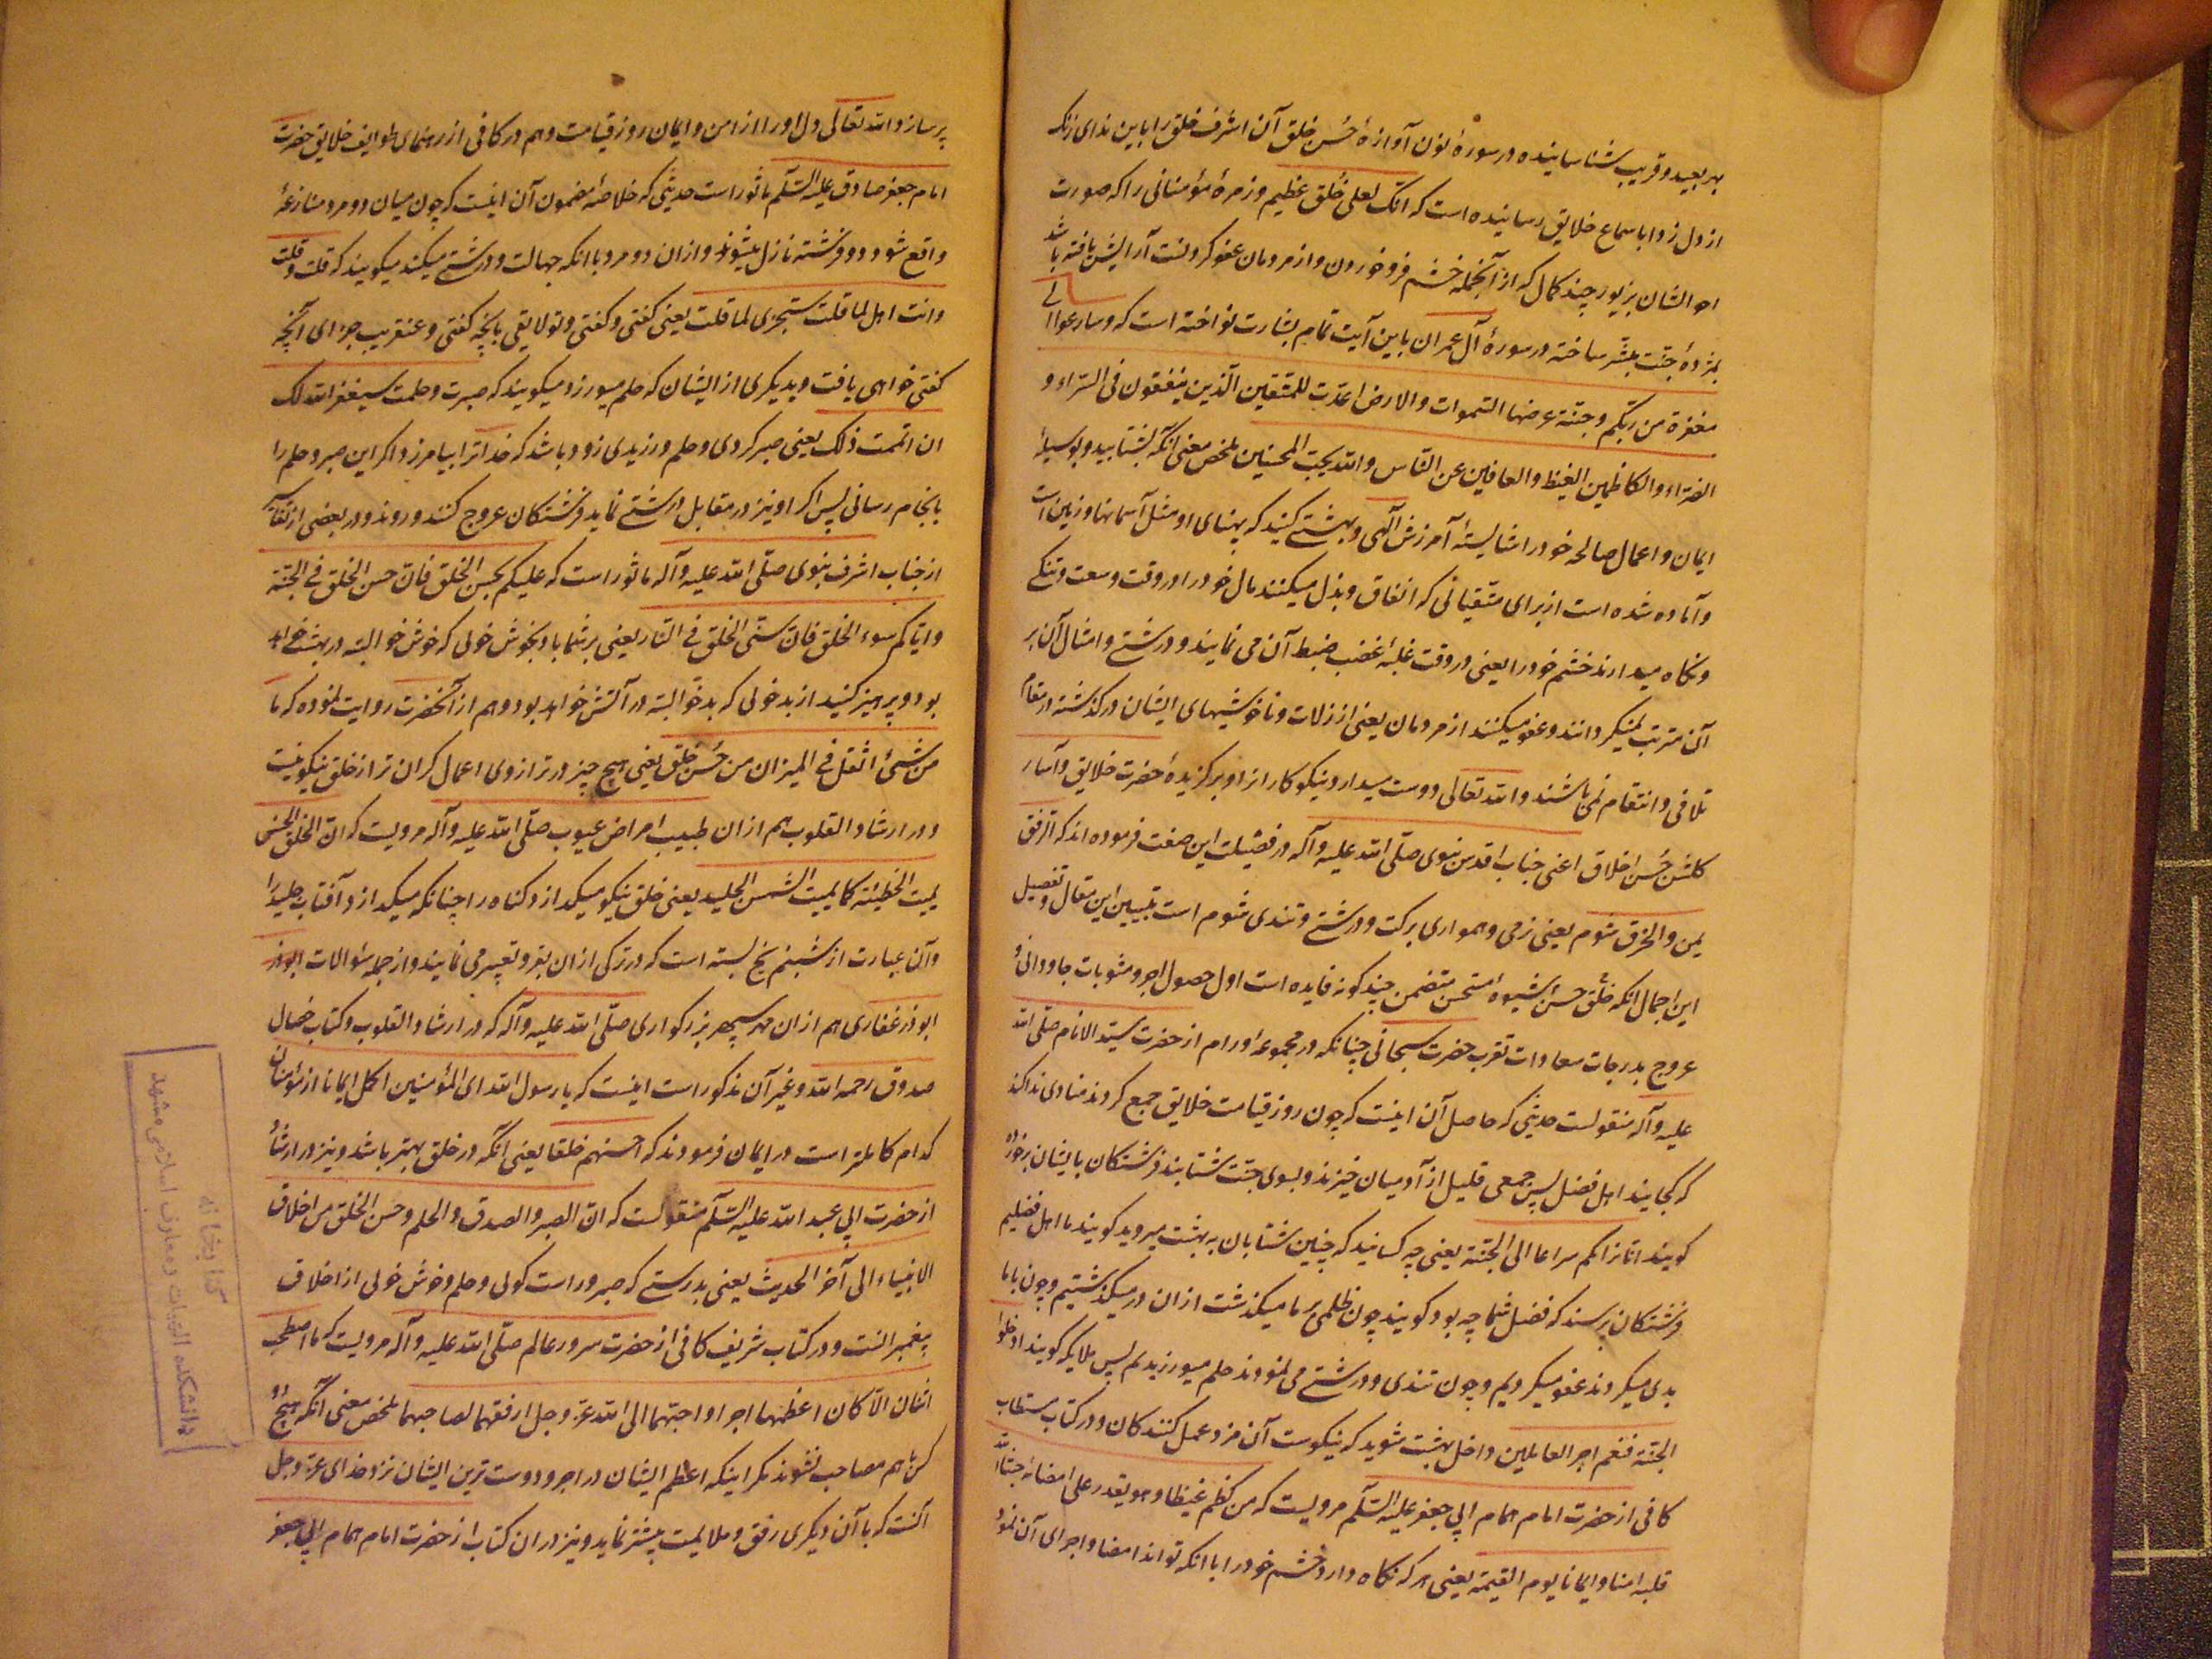 بهر بعید و قریب شناسانیده در سورهٔ نون آوازهٔ حُسن خلق آن اشرف خلق را باین ندای زنک
از دل زدا باسماع خلایق رسانیده است که انّک لعلی خُلق عظیم و زمرهٔ مؤمنانی را که صورت
احوالشان بزیور چند کمال که از آنجمله خشم فرو خوردن و از مردمان عفو کردنست آرایش یافته باشد
بمژدهٔ جنّت مبشّر ساخته در سورهٔ آل عمران باین آیت تمام بشارت نواخته است که و سارعوا الی
مغفرة من ربّکم و جنّة عرضها السّموات والارض اعدّت للمتّقین الّذین ینفقون فی السّراء و
الضّراء والکاظمین الغیظ والعافین عن النّاس والله یحبّ المحسنین ملخص معنی آنکه بشتابید و بوسیلهٔ
ایمان و اعمال صالحه خود را شایستهٔ آمرزش الهی و بهشتی کنید که پهنای او مثل آسمانها و زمین است
و آماده شده است از برای متّقیانی که انفاق و بذل میکنند مال خود را در وقت وسعت و تنکی
و نکاه میدارند خشم خود را یعنی در وقت غلبهٔ غضب ضبط آن می نمایند و درشتی و امثال آن بر
آن مترتب نمیکردانند و عفو میکنند از مردمان یعنی از زلات و ناخوشیهای ایشان درکذشته در مقام
تلافی و انتقام نمی باشند و الله تعالی دوست میدارد نیکوکارانرا و برکزیدهٔ حضرت خلایق و آبیار
کلشن حُسن اخلاق اعنی جناب اقدس نبوی صلّی الله علیه وآله در فضیلت این صفت فرموده اند که الرّفق
یمن والخرق شوم یعنی نرمی و همواری برکت و درشتی و تندی شوم است تبیین این مقال و تفصیل
این اجمال انکه خُلق حسن شیوهٔ مستحسن متضمن چند کونه فایده است اول حصول اجر و مثوبات جاودانی و
عروج بدرجات سعادات تقرب حضرت سبحانی چنانکه در مجموعهٔ ورام از حضرت سیّد الانام صلّی الله
علیه وآله منقولست حدیثی که حاصل آن اینست که چون روز قیامت خلایق جمع کردند منادی ندا کند
که کجایند اهل فضل پس جمعی قلیل از آدمیان خیزند و بسوی جنّت شتابند فرشتکان بایشان برخورده
کویند انّا نراکم سراعا الی الجنّة یعنی چه کسانید که چنین شتابان به بهشت میروید کویند ما اهل فضلیم
فرشتکان پرسند که فضل شما چه بود کویند چون ظلمی بر ما میکذشت ازان درمیکذشتیم و چون با ما
بدی میکردند عفو میکردیم و چون تندی و درشتی می نمودند حلم میورزیدیم پس ملایکه کویند ادخلوا
الجنّة فنعم اجر العاملین داخل بهشت شوید که نیکوست آن مزد عمل کنندکان و در کتاب مستطاب
کافی از حضرت امام همام ابی جعفر علیه السّلم مرویست که من کظم غیظا و هو یقدر علی امضائه حشا الله
قلبه امنا و ایمانا یوم القیمة یعنی هر که نکاه دارد خشم خود را با انکه تواند امضا و اجرای آن نمود
پر سازد الله تعالی دل او را از امن و ایمان روز قیامت و هم در کافی از رهنمای طوایف خلایق حضرت
امام جعفر صادق علیه السّلم ماثور است حدیثی که خلاصهٔ مضمون آن اینست که چون میان دو مرد منازعهٔ
واقع شود دو فرشته نازل میشوند و ازان دو مرد با انکه جهالت و درشتی میکند میکویند که قلت و قلت
و انت اهل لما قلت ستجزی لما قلت یعنی کفتی و کفتی و تو لایقی بانچه کفتی و عنقریب جزای آنچه
کفتی خواهی یافت و بدیکری از ایشان که حلم میورزد میکویند که صبرت و حلمت سیغفر الله لک
ان اتممت ذلک یعنی صبر کردی و حلم ورزیدی زود باشد که خدا ترا بیامرزد اکر این صبر و حلم را
بانجام رسانی پس اکر او نیز در مقابل درشتی نماید فرشتکان عروج کنند و روند و در بعضی از تفاسیر
از جناب اشرف نبوی صلّی الله علیه وآله ماثور است که علیکم بحسن الخلق فانّ حسن الخلق فی الجنّة
و ایّاکم سوء الخلق فانّ سیّئ الخلق فی النّار یعنی بر شما باد بخوش خوئی که خوش خو البته در بهشت خواهد
بود و پرهیز کنید از بد خوئی که بد خو البته در آتش خواهد بود و هم از آنحضرت روایت نموده که ما
من شئ اثقل فی المیزان من حُسن خلق یعنی هیچ چیز در ترازوی اعمال کران تر از خلق نیکو نیست
و در ارشاد القلوب هم ازان طبیب امراض عیوب صلّی الله علیه وآله مرویست که انّ الخلق الحسن
یمیت الخطیئة کما یمیت الشمس الجلید یعنی خلق نیکو میکدازد کناه را چنانکه میکدازد آفتاب جلید را
و آن عبارت از شبنم یخ بسته است که در ترکی ازان بقرو تعبیر می نمایند و از جمله سؤالات
ابوذر غفاری هم ازان مهر سپهر بزرکواری صلّی الله علیه وآله که در ارشاد القلوب و کتاب خصال
صدوق رحمه الله و غیر آن مذکور است اینست که یا رسول الله ای المؤمنین اکمل ایمانا از مؤمنان
کدام کاملتر است در ایمان فرمودند که احسنهم خلقا یعنی آنکه در خلق بهتر باشد و نیز در ارشاد
از حضرت ابی عبد الله علیه السّلم منقولست که انّ الصبر والصدق والحلم و حسن الخلق من اخلاق
الانبیاء الی آخر الحدیث یعنی بدرستی که صبر و راست کوئی و حلم و خوش خوئی از اخلاق
پیغمبرانست و در کتاب شریف کافی از حضرت سرور عالم صلّی الله علیه وآله مرویست که ما اصطحب
اثنان الّا کان اعظمهما اجرا و احبّهما الی الله عزّ وجل ارفقهما لصاحبهما ملخص معنی آنکه هیچ دو
کس با هم مصاحب نشوند مکر اینکه اعظم ایشان در اجر و دوست ترین ایشان نزد خدای عزّ وجل
آنست که با آن دیکری رفق و ملایمت بیشتر نماید و نیز دران کتاب از حضرت امام همام ابی جعفر
کتابخانه
دانشکده الهیات و معارف اسلامی مشهد